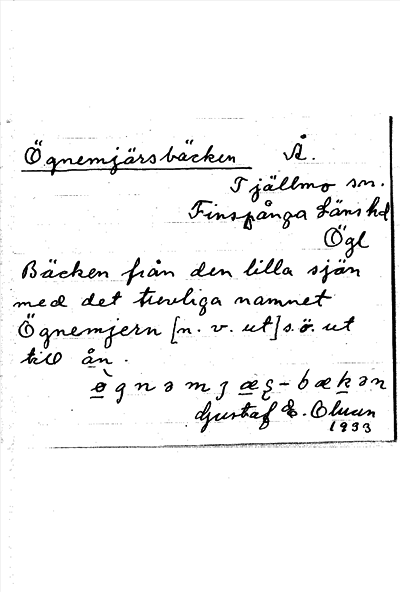 Ögnemjärsbäcken Å.
Tjällmo sn.
Finspånga Läns hd
Ögl
Bäcken från den lilla sjön
med det trevliga namnet
Ögnemjern [n. v. ut] s. ö. ut
till ån.
Gustaf E.
1933